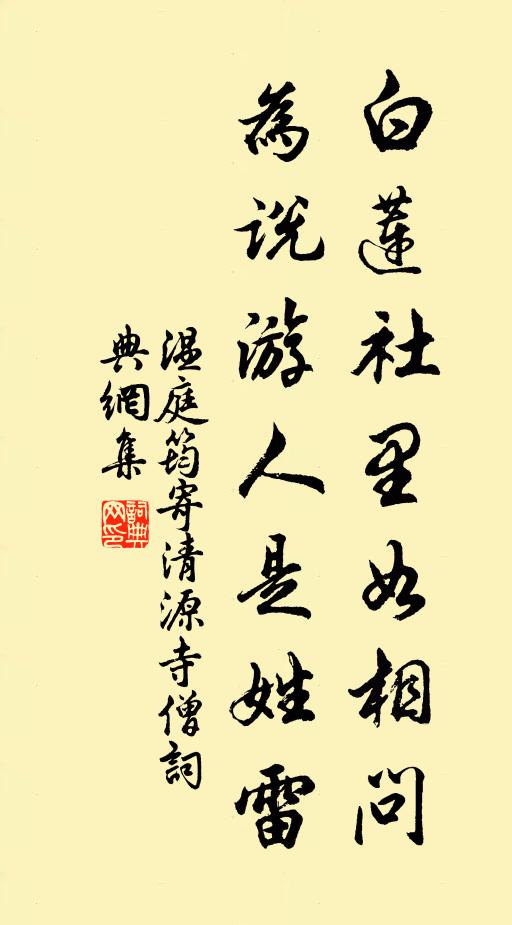 白蓮社里如相問
為說游人是姓雷
温庭筠寄清源寺僧詞
典網集
詞典网印